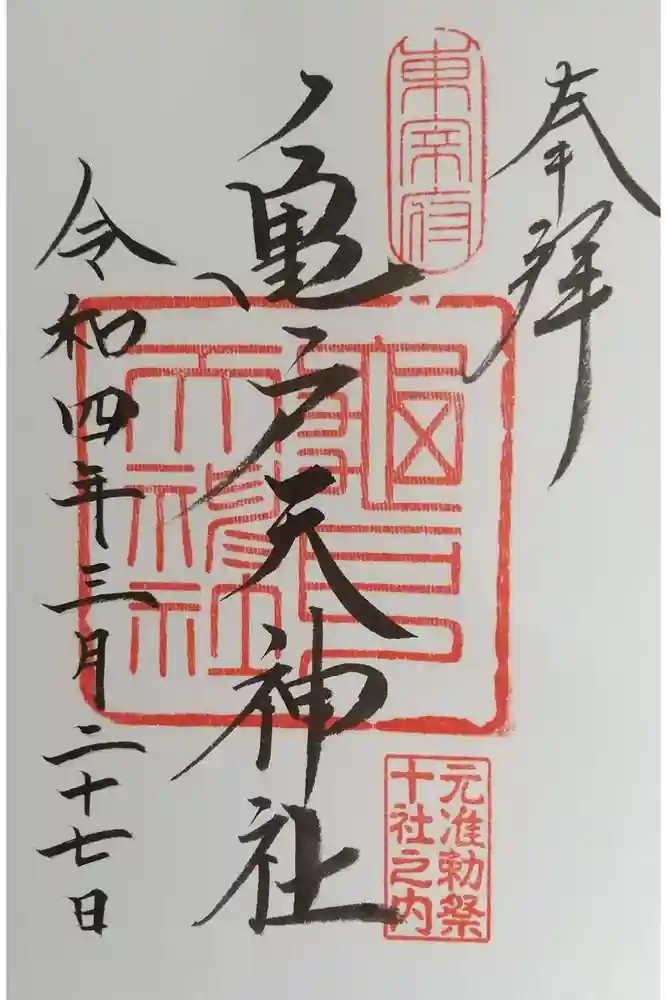 奉拝
東宰府
元准勅祭
十社之内
亀戸天神社
龜戸
天神社
令和四年三月二十七日